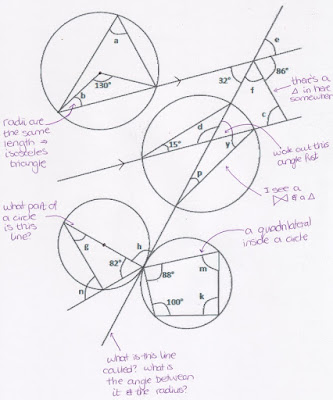 a
b
130°
radii are
the same
length ⇒
isosceles
triangle
e
32°
86°
f
there's a
Δ in here
somewhere
c
d
15°
y
work out this
angle first
p
I see a
⋈ & a Δ
what part of
a circle
is this
line?
g
h
82°
n
a quadrilateral
inside a circle
88°
m
100°
k
what is this line
called? what is
the angle between
it & the radius?